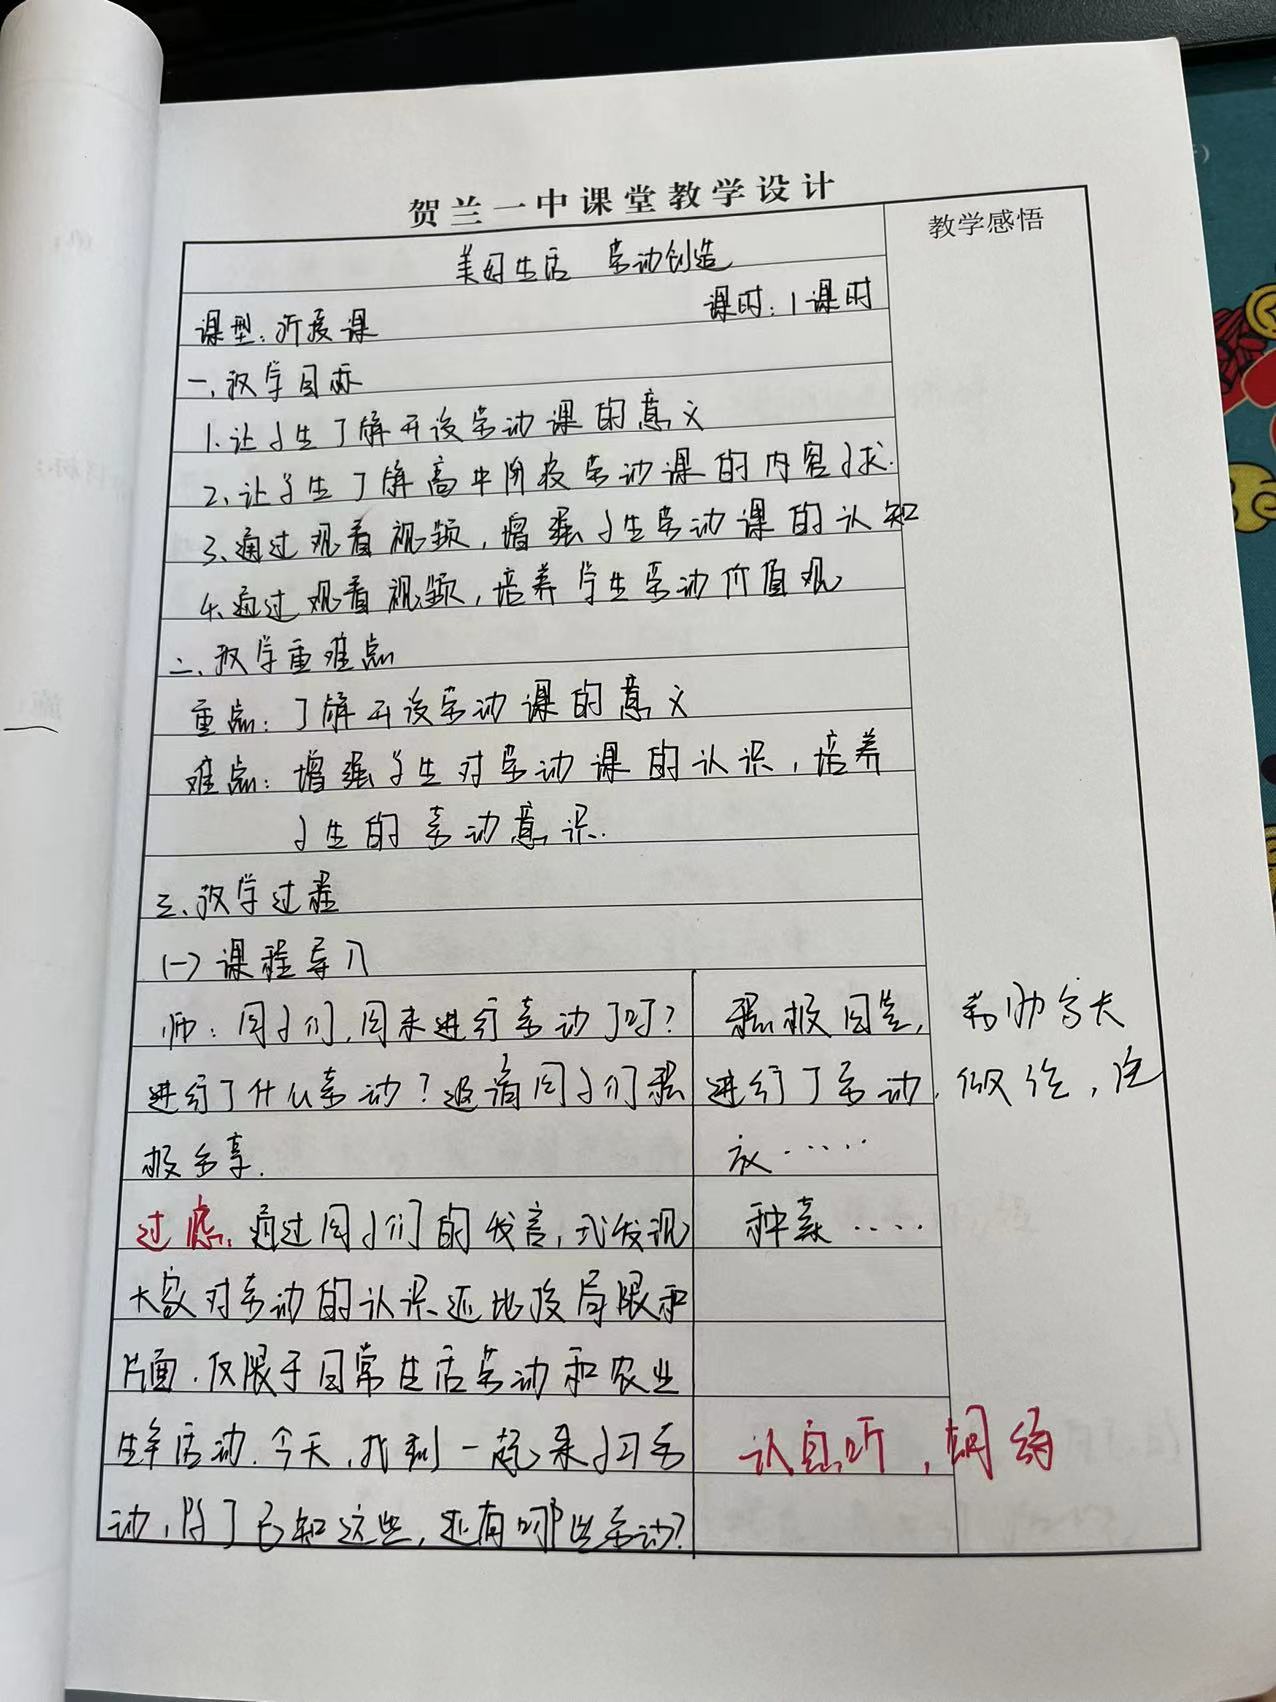 贺兰一中课堂教学设计
教学感悟
美好生活 劳动创造
课型:新授课 课时:1课时
一、教学目标
1.让学生了解开设劳动课的意义
2、让学生了解高中阶段劳动课的内容要求.
3、通过观看视频,增强学生劳动课的认知
4.通过观看视频,培养学生劳动价值观
二、教学重难点
重点:了解开设劳动课的意义
难点:增强学生对劳动课的认识,培养
学生的劳动意识.
三、教学过程
(一)课程导入
师:同学们,周末进行劳动了吗? 积极回答, 帮助家长
进行了什么劳动?邀请同学们积 进行了劳动, 做饭,洗
极分享. 衣……
过渡:通过同学们的发言,我发现 种菜……
大家对劳动的认识还比较局限和
片面.仅限于日常生活劳动和农业
生产活动.今天,我们一起来学习劳 认真听,
动,除了已知这些,还有哪些劳动?